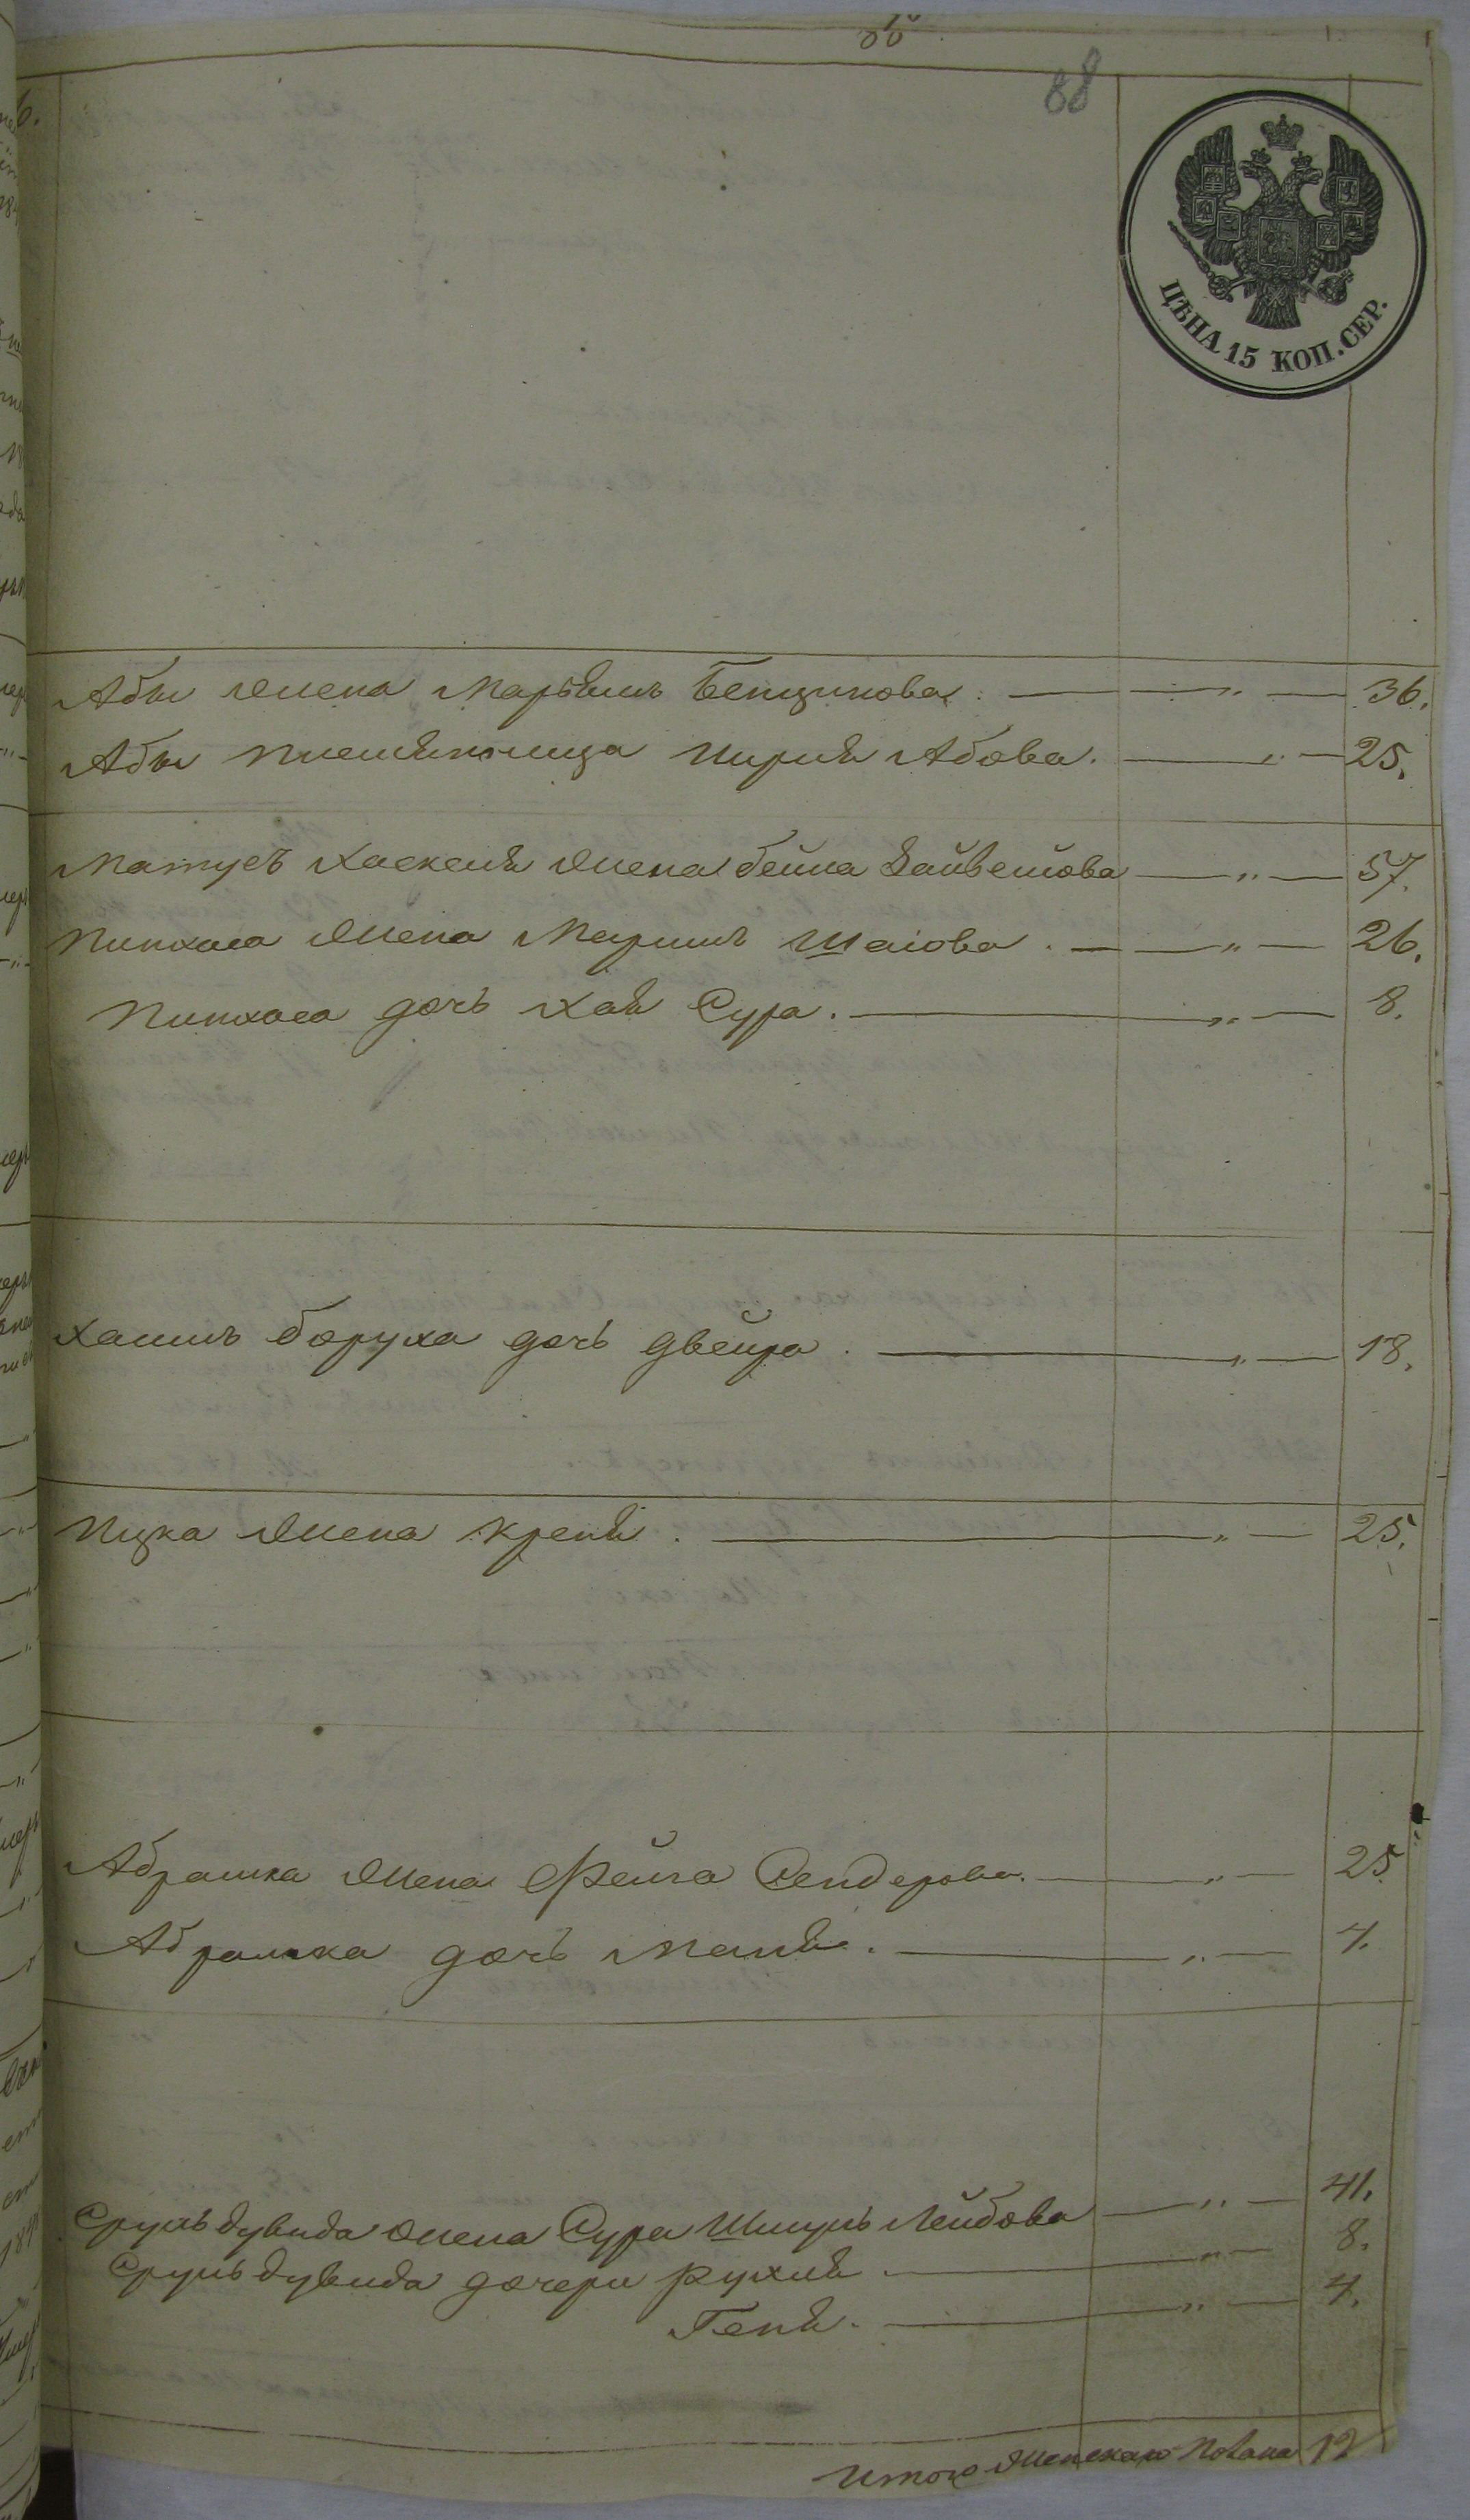 88
ЦѢНА 15 КОП. СЕР.
Абы жена Марьямъ Бенцинова. — " — 36.
Абы племянница Мирля Абова. — " — 25.
Матусъ Хаскеля жена Бейла Зайветова — " — 57.
Пинхаса жена Маримъ Шаiова. — " — 26.
Пинхаса дочь Хая Сура. — " — 8.
Хаимъ Боруха дочь Двейра. — " — 18.
Ицка жена Крейня. — " — 25.
Абрамка жена Фейга Сендерова. — " — 25
Абрамка дочь Маня. — " — 4.
Сруль Дувида жена Сура Шмуль Лейбова — " — 41.
Сруль Дувида дочери Рухля. — " — 8.
Геня. — " — 4.
Итого женскаго пола 12